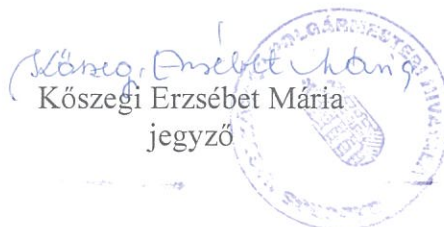 Kőszegi Erzsébet Mária
Kőszegi Erzsébet Mária
jegyző
POLGÁRMESTERI HIVATAL